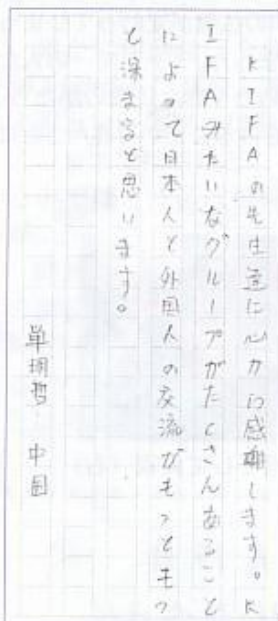 KIFAの先生達に心から感謝します。K
IFAみたいなグループがたくさんあること
によって日本人と外国人の交流がもっともっ
と深まると思います。
単 哲 中国